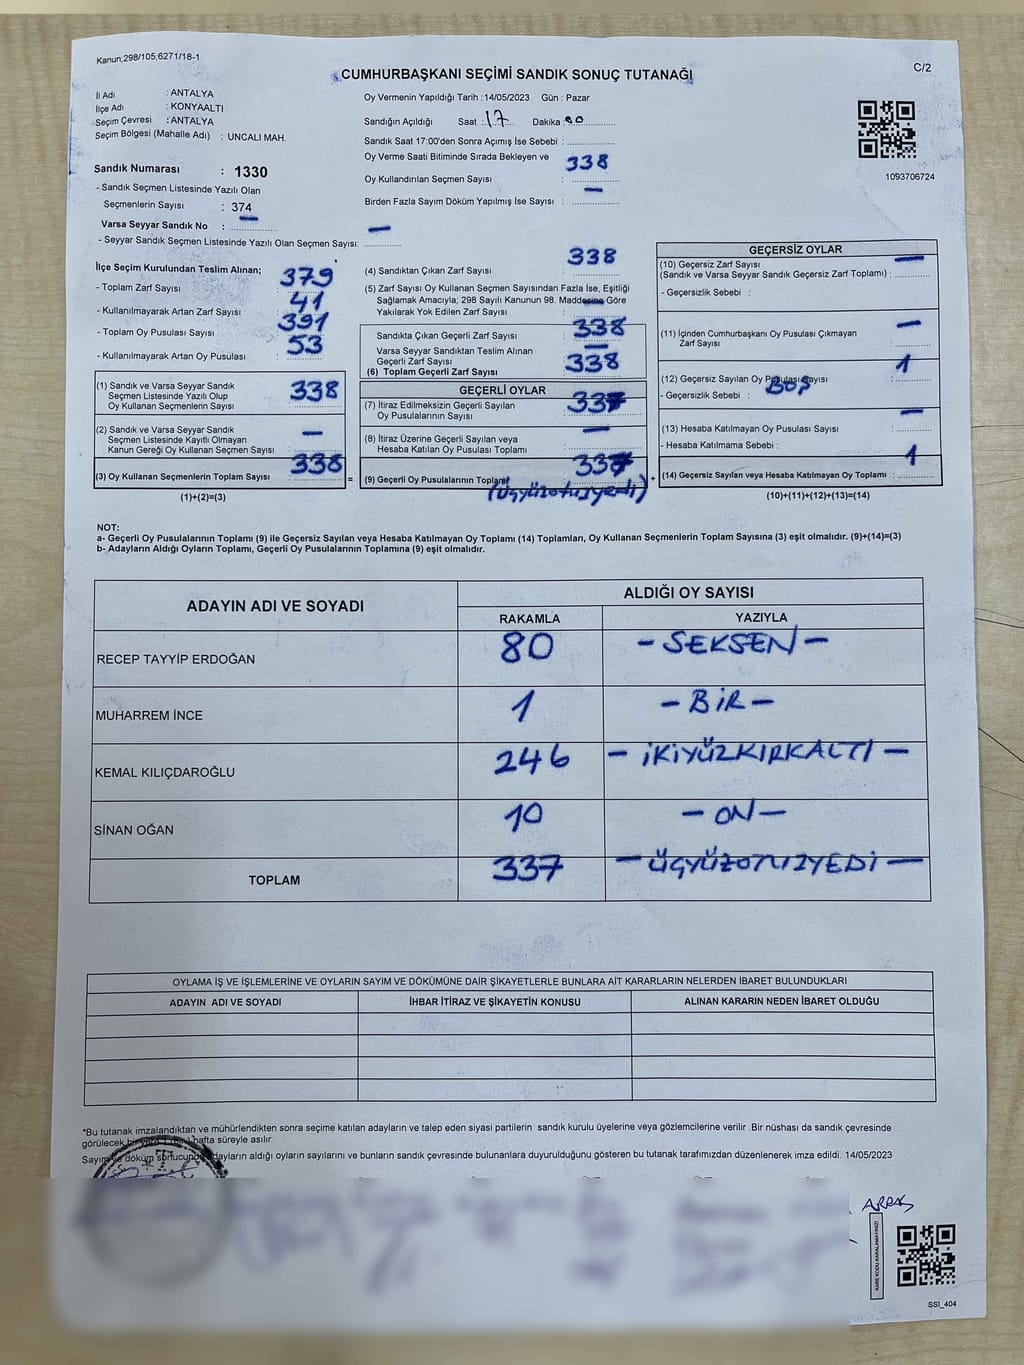 Kanun,298/105;6271/18-1
C/2
CUMHURBAŞKANI SEÇİMİ SANDIK SONUÇ TUTANAĞI
İl Adı : ANTALYA
İlçe Adı : KONYAALTI
Seçim Çevresi : ANTALYA
Seçim Bölgesi (Mahalle Adı) : UNCALI MAH.
Sandık Numarası : 1330
- Sandık Seçmen Listesinde Yazılı Olan
Seçmenlerin Sayısı : 374
Varsa Seyyar Sandık No : —
- Seyyar Sandık Seçmen Listesinde Yazılı Olan Seçmen Sayısı: —
Oy Vermenin Yapıldığı Tarih : 14/05/2023 Gün : Pazar
Sandığın Açıldığı Saat : 17 Dakika : 00
Sandık Saat 17:00'den Sonra Açımış İse Sebebi :
Oy Verme Saati Bitiminde Sırada Bekleyen ve
Oy Kullandırılan Seçmen Sayısı : 338
Birden Fazla Sayım Döküm Yapılmış İse Sayısı : —
1093706724
İlçe Seçim Kurulundan Teslim Alınan;
- Toplam Zarf Sayısı : 379
- Kullanılmayarak Artan Zarf Sayısı : 41
- Toplam Oy Pusulası Sayısı : 391
- Kullanılmayarak Artan Oy Pusulası : 53
(1) Sandık ve Varsa Seyyar Sandık
Seçmen Listesinde Yazılı Olup
Oy Kullanan Seçmenlerin Sayısı : 338
(2) Sandık ve Varsa Seyyar Sandık
Seçmen Listesinde Kayıtlı Olmayan
Kanun Gereği Oy Kullanan Seçmen Sayısı : —
(3) Oy Kullanan Seçmenlerin Toplam Sayısı : 338
(1)+(2)=(3)
(4) Sandıktan Çıkan Zarf Sayısı : 338
(5) Zarf Sayısı Oy Kullanan Seçmen Sayısından Fazla İse, Eşitliği
Sağlamak Amacıyla; 298 Sayılı Kanunun 98. Maddesine Göre
Yakılarak Yok Edilen Zarf Sayısı : —
Sandıkta Çıkan Geçerli Zarf Sayısı : 338
Varsa Seyyar Sandıktan Teslim Alınan
Geçerli Zarf Sayısı : —
(6) Toplam Geçerli Zarf Sayısı : 338
GEÇERLİ OYLAR
(7) İtiraz Edilmeksizin Geçerli Sayılan
Oy Pusulalarının Sayısı : 337
(8) İtiraz Üzerine Geçerli Sayılan veya
Hesaba Katılan Oy Pusulası Toplamı : —
= (9) Geçerli Oy Pusulalarının Toplamı : 337 +
(üçyüzotuzyedi)
GEÇERSİZ OYLAR
(10) Geçersiz Zarf Sayısı
(Sandık ve Varsa Seyyar Sandık Geçersiz Zarf Toplamı) : —
- Geçersizlik Sebebi :
(11) İçinden Cumhurbaşkanı Oy Pusulası Çıkmayan
Zarf Sayısı : —
(12) Geçersiz Sayılan Oy Pusulası Sayısı : 1
- Geçersizlik Sebebi : BOŞ
(13) Hesaba Katılmayan Oy Pusulası Sayısı : —
- Hesaba Katılmama Sebebi :
(14) Geçersiz Sayılan veya Hesaba Katılmayan Oy Toplamı : 1
(10)+(11)+(12)+(13)=(14)
NOT:
a- Geçerli Oy Pusulalarının Toplamı (9) ile Geçersiz Sayılan veya Hesaba Katılmayan Oy Toplamı (14) Toplamları, Oy Kullanan Seçmenlerin Toplam Sayısına (3) eşit olmalıdır. (9)+(14)=(3)
b- Adayların Aldığı Oyların Toplamı, Geçerli Oy Pusulalarının Toplamına (9) eşit olmalıdır.
ADAYIN ADI VE SOYADI ALDIĞI OY SAYISI
RAKAMLA YAZIYLA
RECEP TAYYİP ERDOĞAN 80 - SEKSEN -
MUHARREM İNCE 1 - BİR -
KEMAL KILIÇDAROĞLU 246 - İKİYÜZKIRKALTI -
SİNAN OĞAN 10 - ON -
TOPLAM 337 - ÜÇYÜZOTUZYEDİ -
OYLAMA İŞ VE İŞLEMLERİNE VE OYLARIN SAYIM VE DÖKÜMÜNE DAİR ŞİKAYETLERLE BUNLARA AİT KARARLARIN NELERDEN İBARET BULUNDUKLARI
ADAYIN ADI VE SOYADI İHBAR İTİRAZ VE ŞİKAYETİN KONUSU ALINAN KARARIN NEDEN İBARET OLDUĞU
*Bu tutanak imzalandıktan ve mühürlendikten sonra seçime katılan adayların ve talep eden siyasi partilerin sandık kurulu üyelerine veya gözlemcilerine verilir .Bir nüshası da sandık çevresinde
görülecek bir yere 1 hafta süreyle asılır.
Sayım ve döküm sonucunda adayların aldığı oyların sayılarını ve bunların sandık çevresinde bulunanlara duyurulduğunu gösteren bu tutanak tarafımızdan düzenlenerek imza edildi. 14/05/2023
KARE KODU KARALAMAYINIZ!
SSI_404